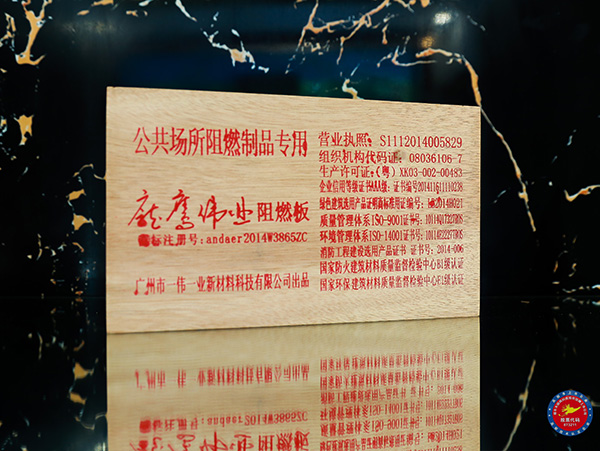 公共场所阻燃制品专用
龙鹰伟业阻燃板
标注册号:andaer2014W3865ZC
广州市一伟一业新材料科技有限公司出品
营业执照：S1112014005829
组织机构代码证：08036106-7
生产许可证：(粤) XK03-002-00483
企业信用等级证书AAA级：证书编号201411611110238
绿色建筑选用产品证明商标准用证编号：
质量管理体系ISO-9001证书号：
环境管理体系ISO-14001证书号：
消防工程建设选用产品证书 证书号：2014-006
国家防火建筑材料质量监督检验中心B1级认证
国家环保建筑材料质量监督检验中心E1级认证